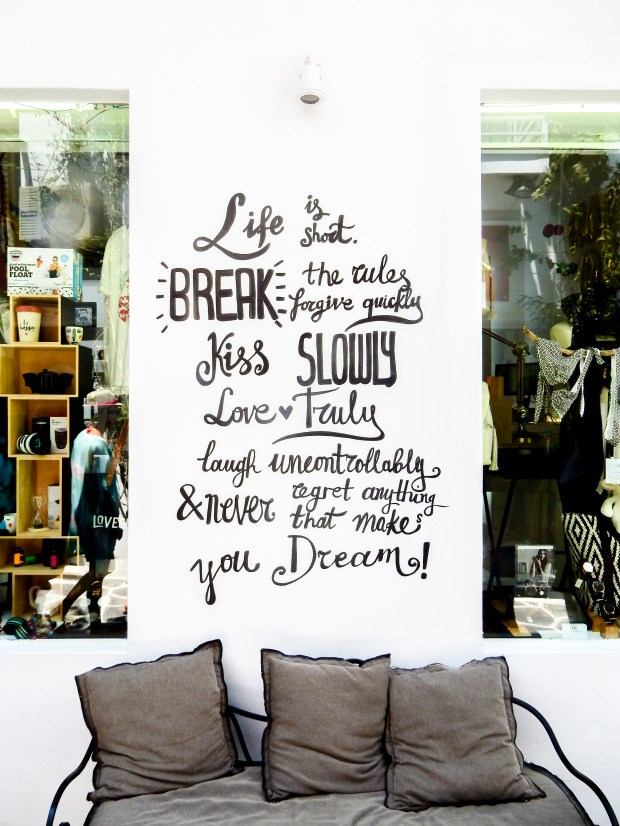 Life is short.
BREAK the rules
forgive quickly
Kiss SLOWLY
Love ♥ Truly
laugh uncontrollably
& never regret anything
that makes
you Dream!
POOL
FLOAT
LOVE